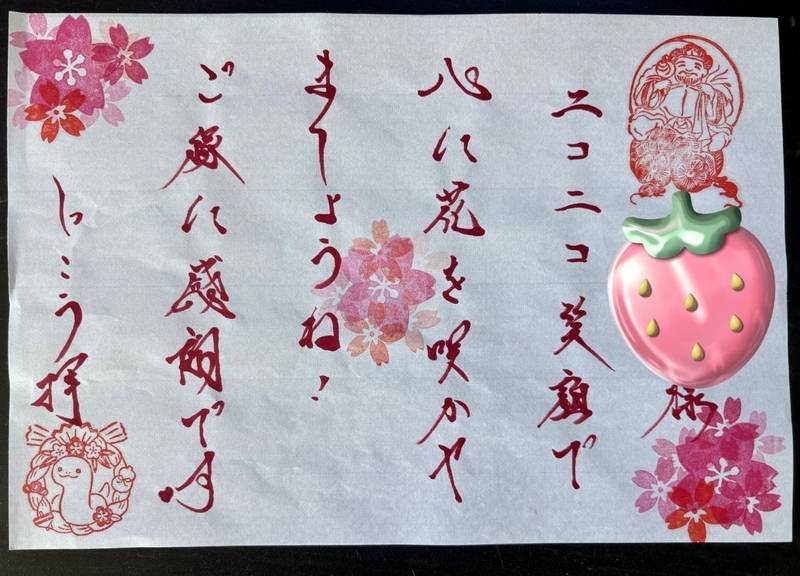 様
ニコニコ笑顔で
心に花を咲かせ
ましょうね!
ご縁に感謝です
じこう拝